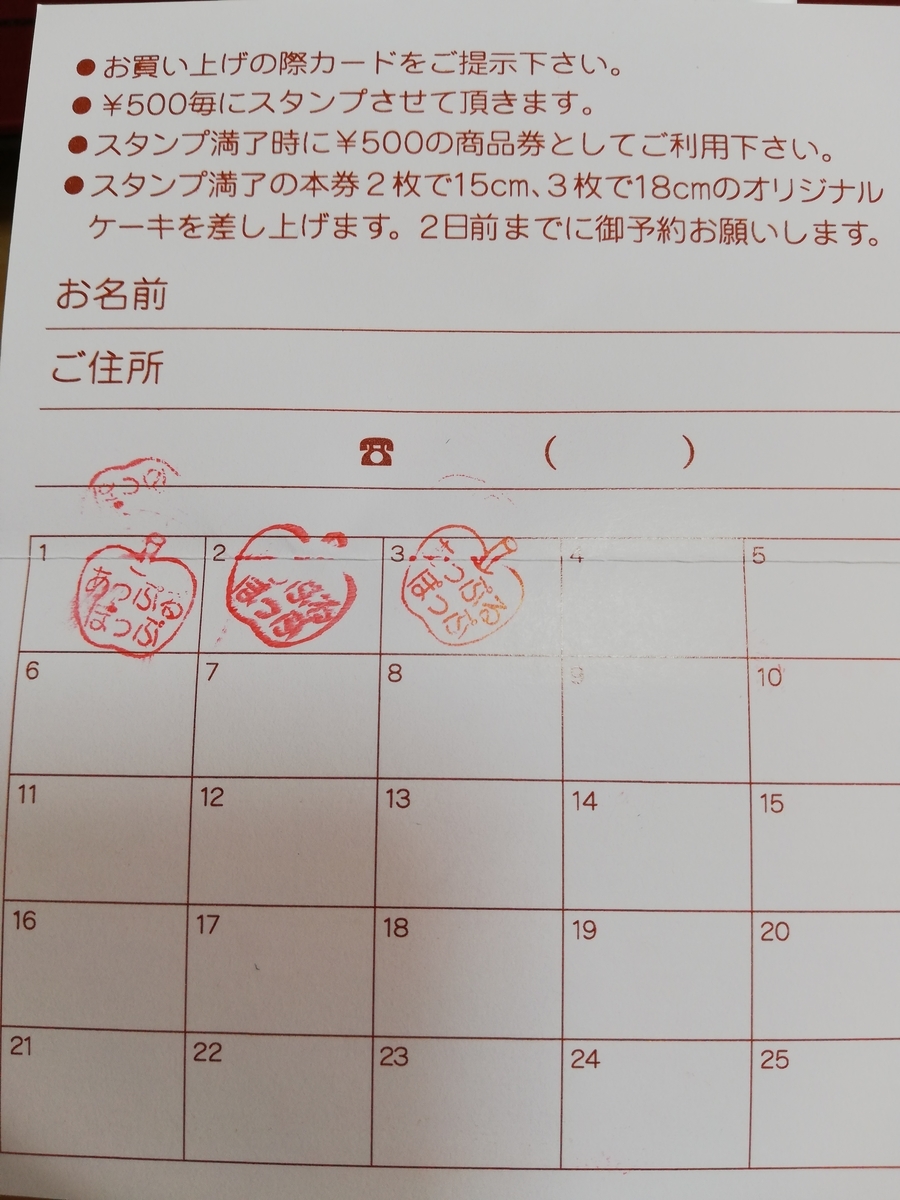 ●お買い上げの際カードをご提示下さい。
●￥500毎にスタンプさせて頂きます。
●スタンプ満了時に￥500の商品券としてご利用下さい。
●スタンプ満了の本券２枚で15cm、３枚で18cmのオリジナル
ケーキを差し上げます。2日前までに御予約お願いします。
お名前
ご住所
☎ ( )
1 2 3 4 5
あっぷる
ぽっぷ
っぷる
ぽっぷ
6 7 8 9 10
11 12 13 14 15
16 17 18 19 20
21 22 23 24 25